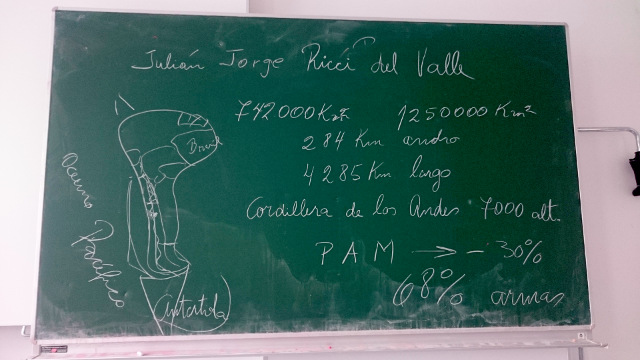 Julián Jorge Ricci del Valle
742000 Km² 1250000 Km²
284 Km ancho
4285 Km largo
Cordillera de los Andes 7000 alt.
P A M → - 30%
68% armas
Brasil
Océano Pacífico
Antártida